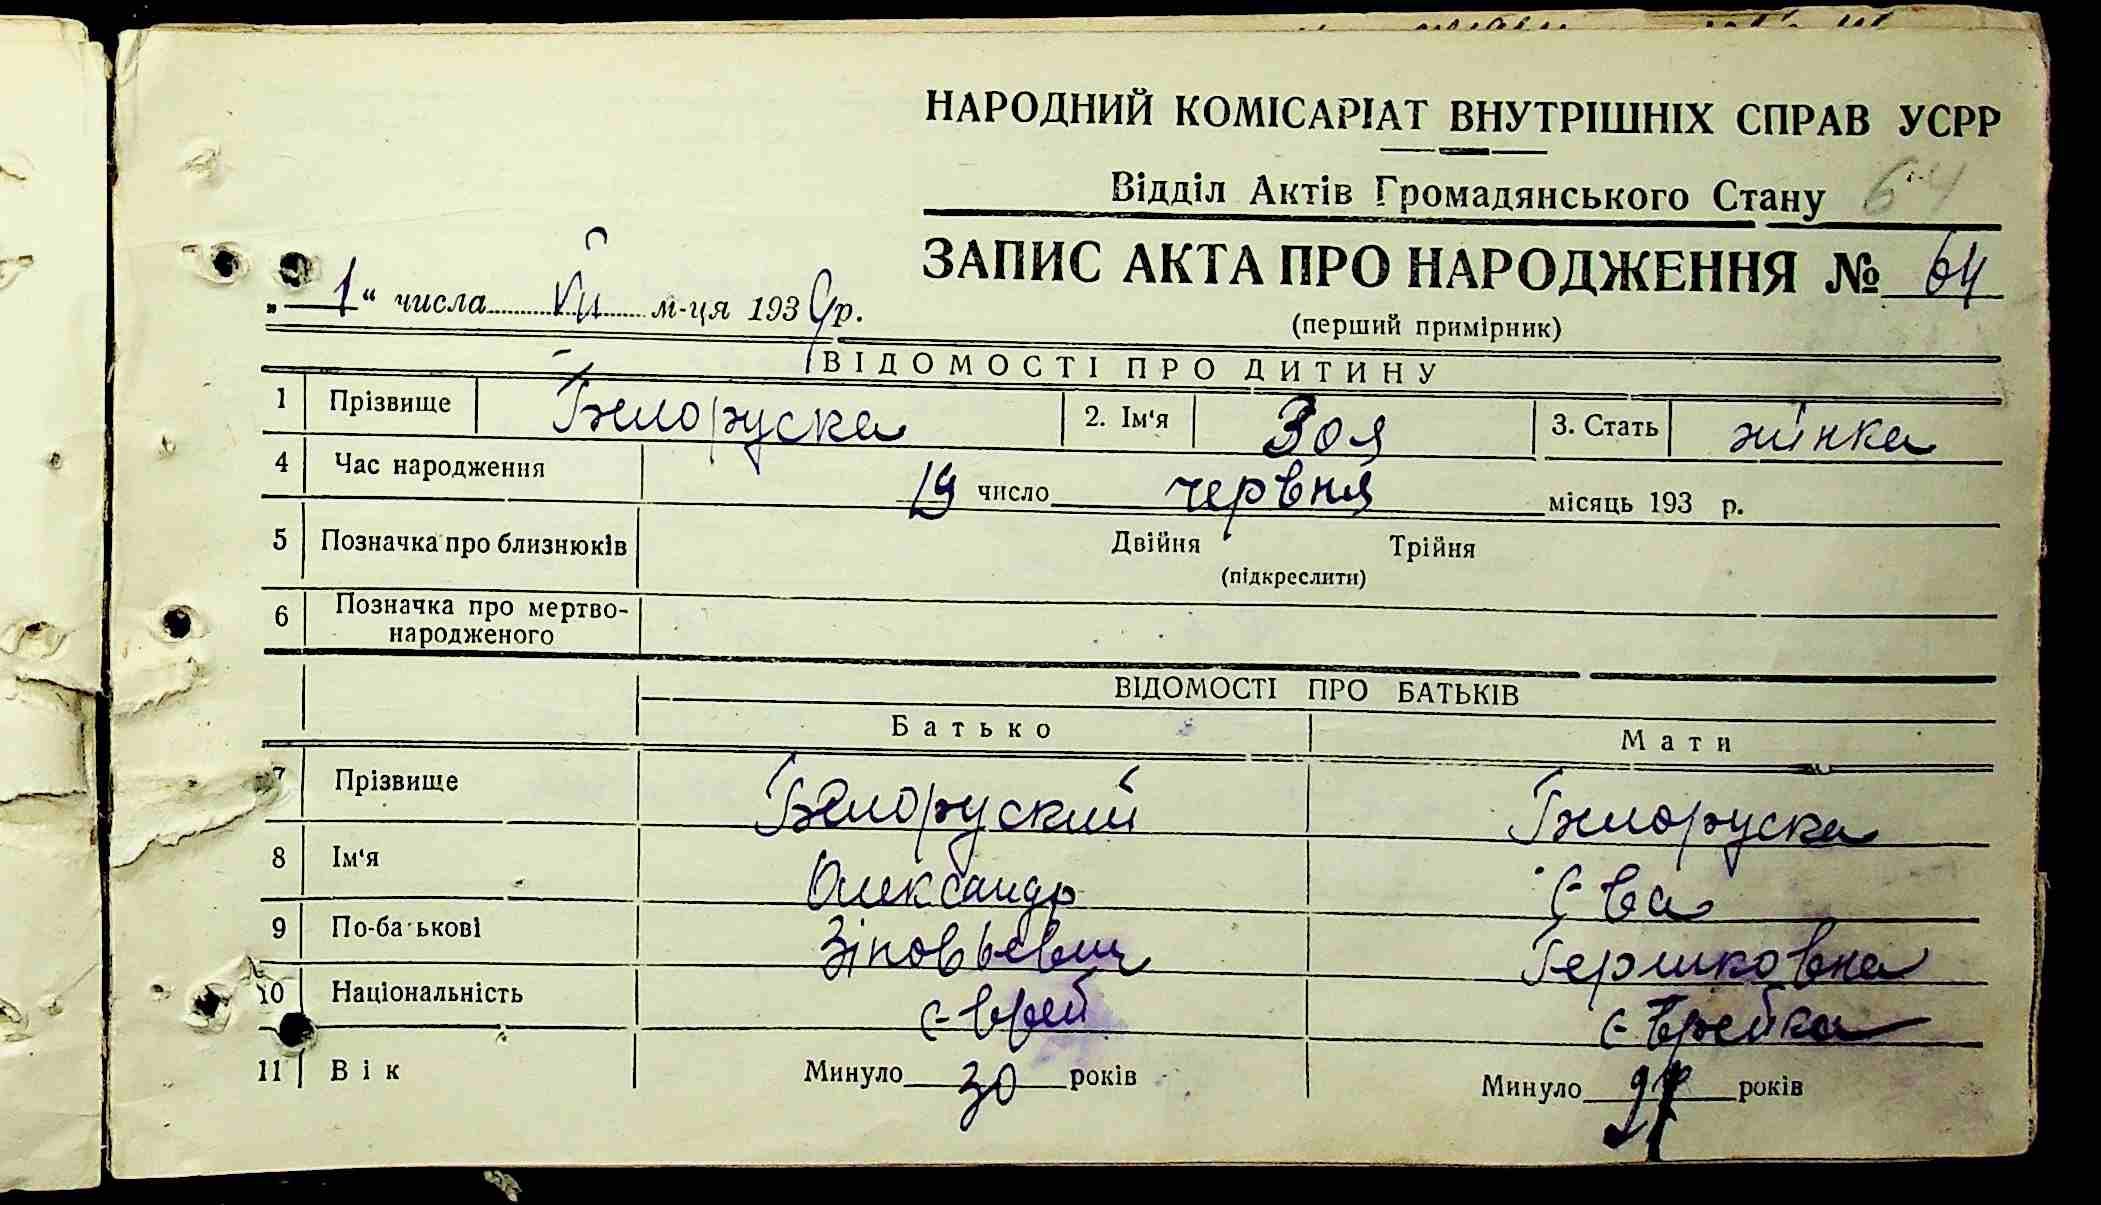 НАРОДНИЙ КОМІСАРІАТ ВНУТРІШНІХ СПРАВ УСРР
Відділ Актів Громадянського Стану 64
ЗАПИС АКТА ПРО НАРОДЖЕННЯ № 64
(перший примірник)
„1“ числа VII м-ця 1939 р.
ВІДОМОСТІ ПРО ДИТИНУ
1 Прізвище Білоруска 2. Ім'я Зоя 3. Стать жінка
4 Час народження 19 число червня місяць 193 р.
5 Позначка про близнюків Двійня Трійня
(підкреслити)
6 Позначка про мертво-
народженого
ВІДОМОСТІ ПРО БАТЬКІВ
Батько Мати
7 Прізвище Білоруский Білоруска
8 Ім'я Олександр Єва
9 По-батькові Зіновьевич Гершковна
10 Національність єврей єврейка
11 Вік Минуло 30 років Минуло 27 років